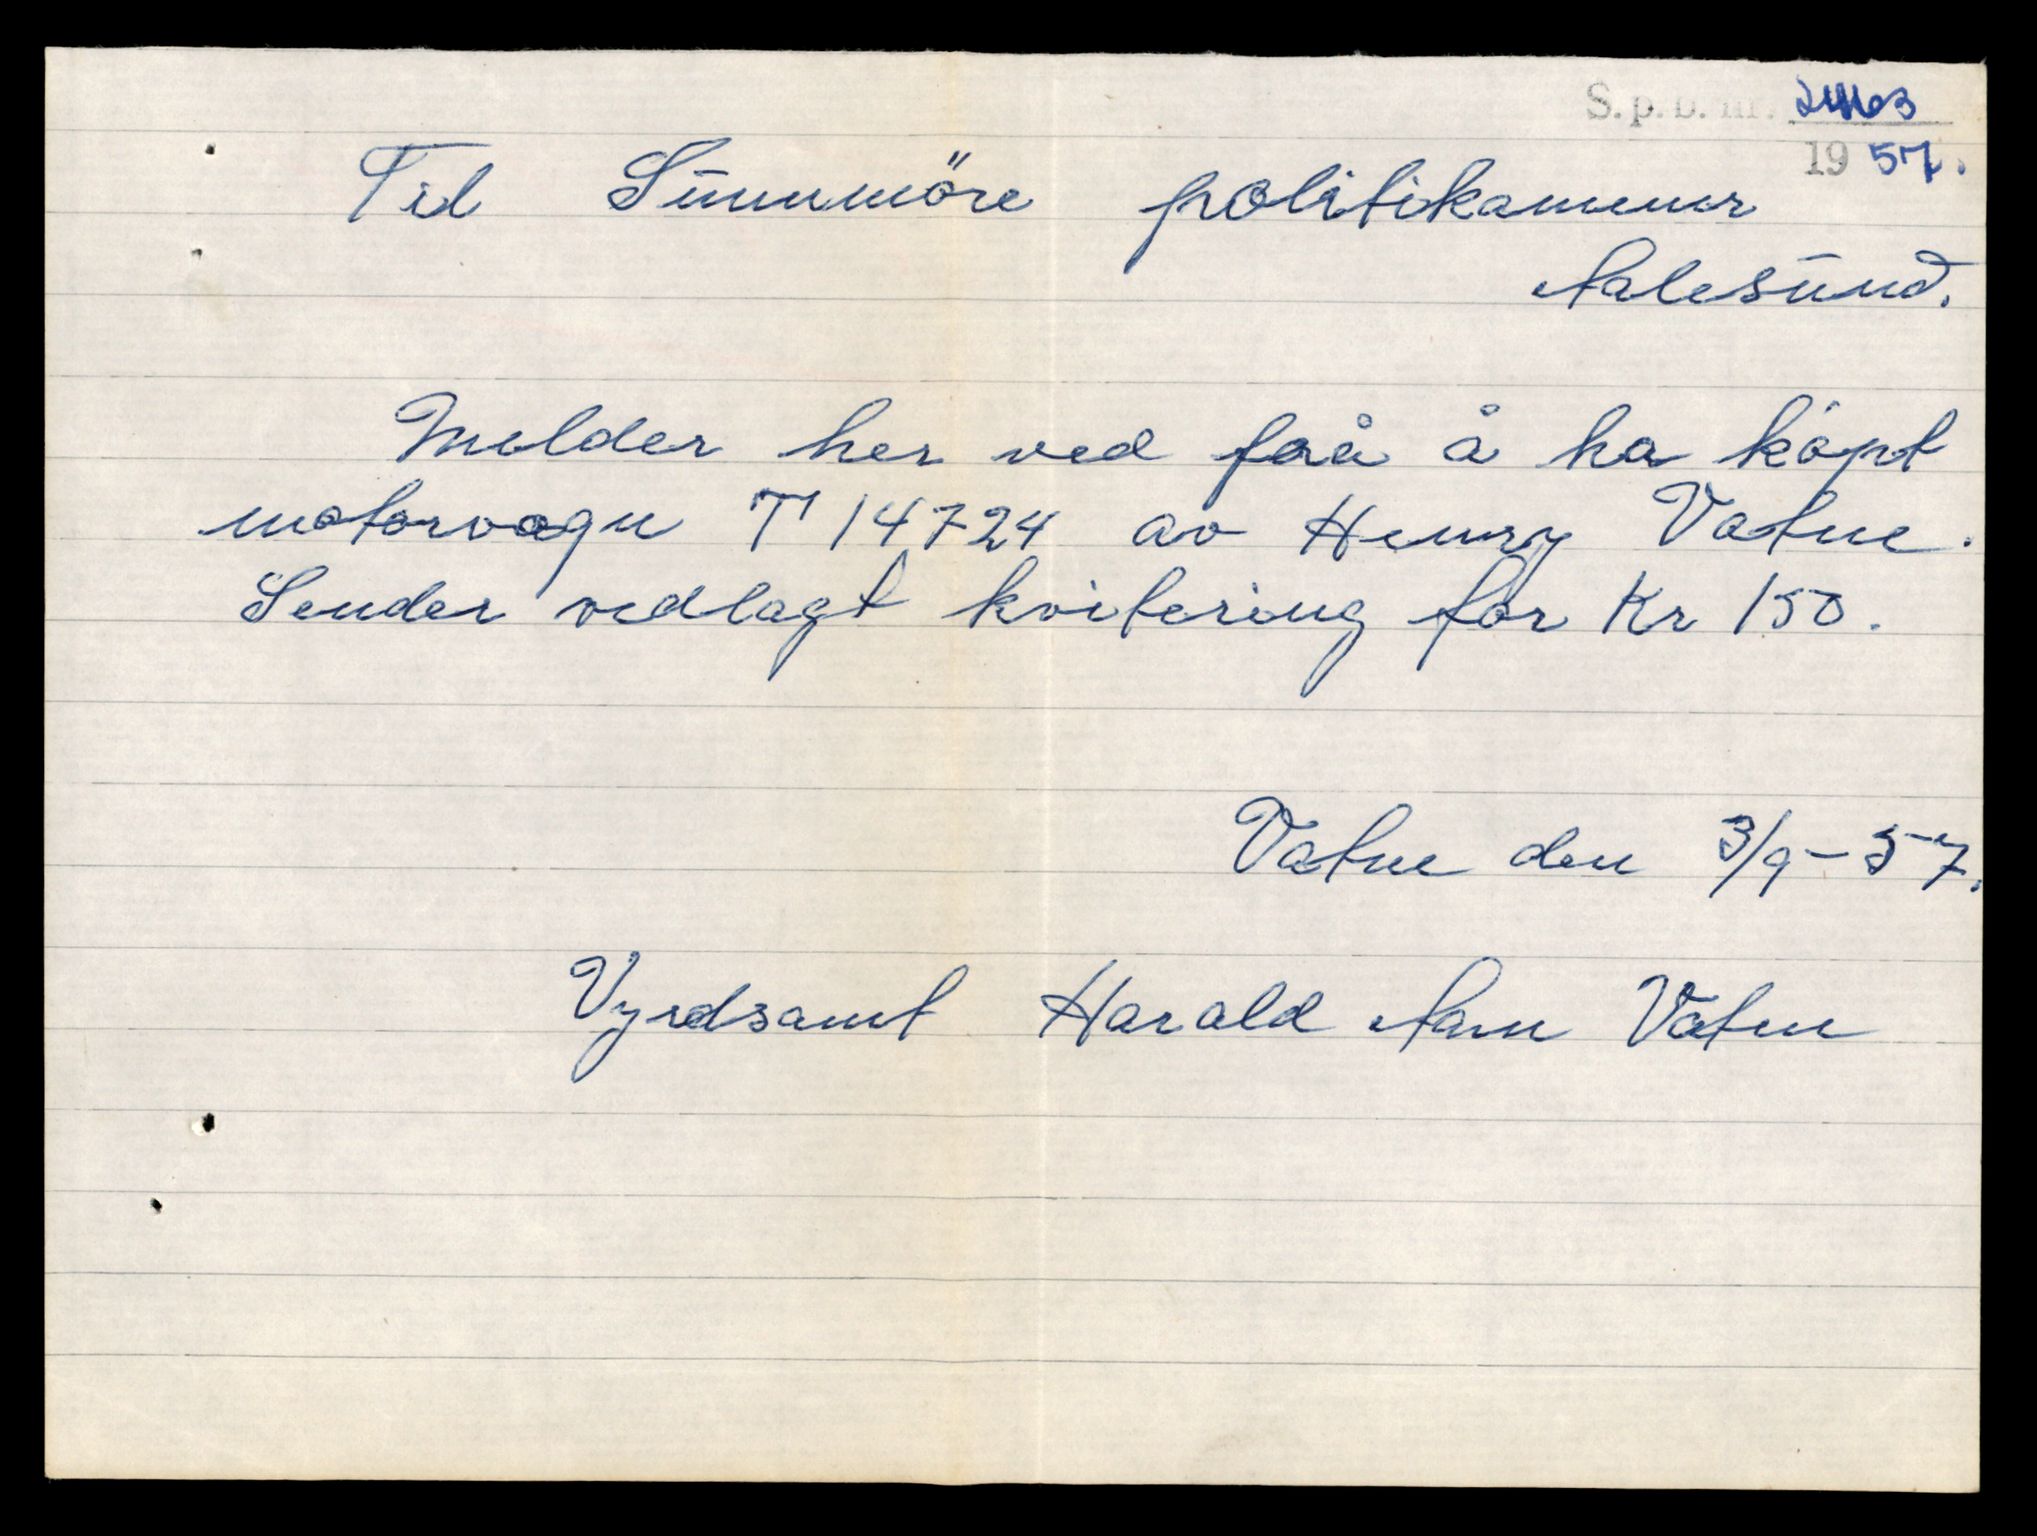 S. p. b. nr.
19 57.
Til Sunnmöre politikammer
Aalesund.
Melder her ved frå å ha köpt
motorvogn T 14724 av Henry Vatne.
Sender vedlagt kvitering for Kr 150.
Vatne den 3/9 - 57.
Vyrdsamt Harald Aam Vatne